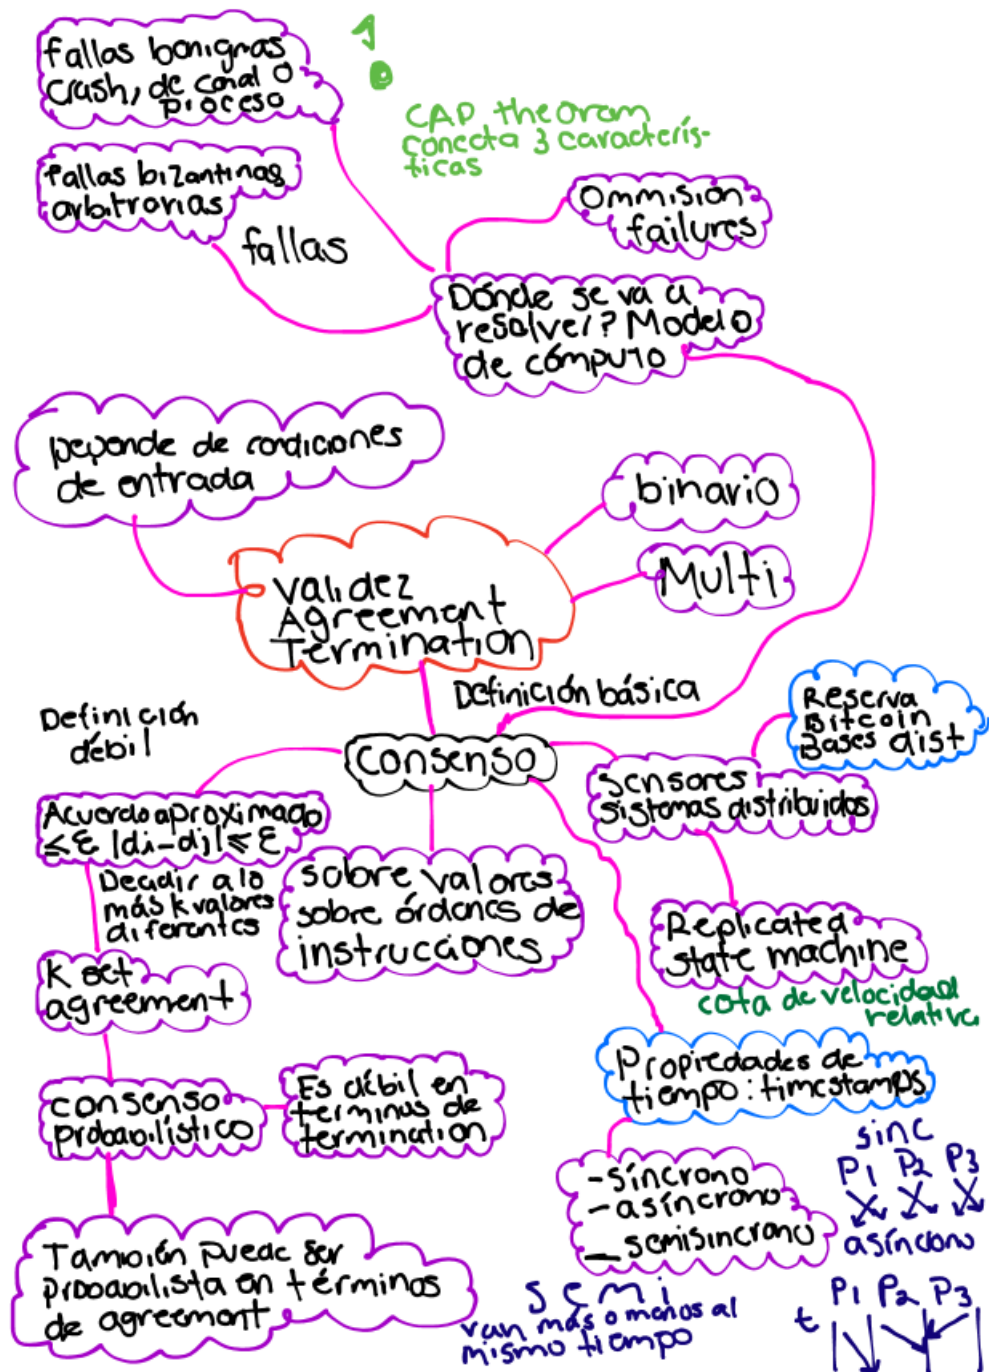 fallas benignas
crash, de canal o
proceso
1
0
CAP theoram
conecta 3 caracterís-
ticas
fallas bizantinas
arbitrarias
fallas
Ommisión
failures
Dónde se va a
resolver? Modelo
de cómputo
Depende de condiciones
de entrada
binario
Multi
Validez
Agreement
Termination
Definición básica
Definición
débil
consenso
Reserva
Bitcoin
Bases dist
Sensores
sistemas distribuidos
Acuerdo aproximado
≤ε |di-dj|≤ε
Decidir a lo
más k valores
diferentes
sobre valores
sobre órdenes de
instrucciones
Replicated
state machine
cota de velocidad
relativa
K set
agreement
Propiedades de
tiempo: timestamps
consenso
probabilístico
Es débil en
terminus de
termination
-síncrono
-asíncrono
_semisincrono
sinc
P1 P2 P3
asíncrono
También puede ser
probabilista en términos
de agreement
semi
van más o menos al
mismo tiempo
P1 P2 P3
t